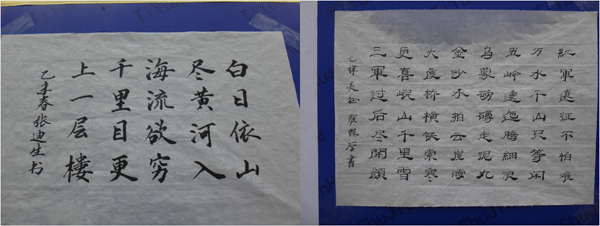 白日依山
尽黄河入
海流欲穷
千里目更
上一层楼
乙未春张迪生书
紅軍遠征不怕难
万水千山只等闲
五岭逶迤腾細浪
乌蒙磅礴走泥丸
金沙水拍云崖暖
大渡桥横铁索寒
更喜岷山千里雪
三軍过后尽開颜